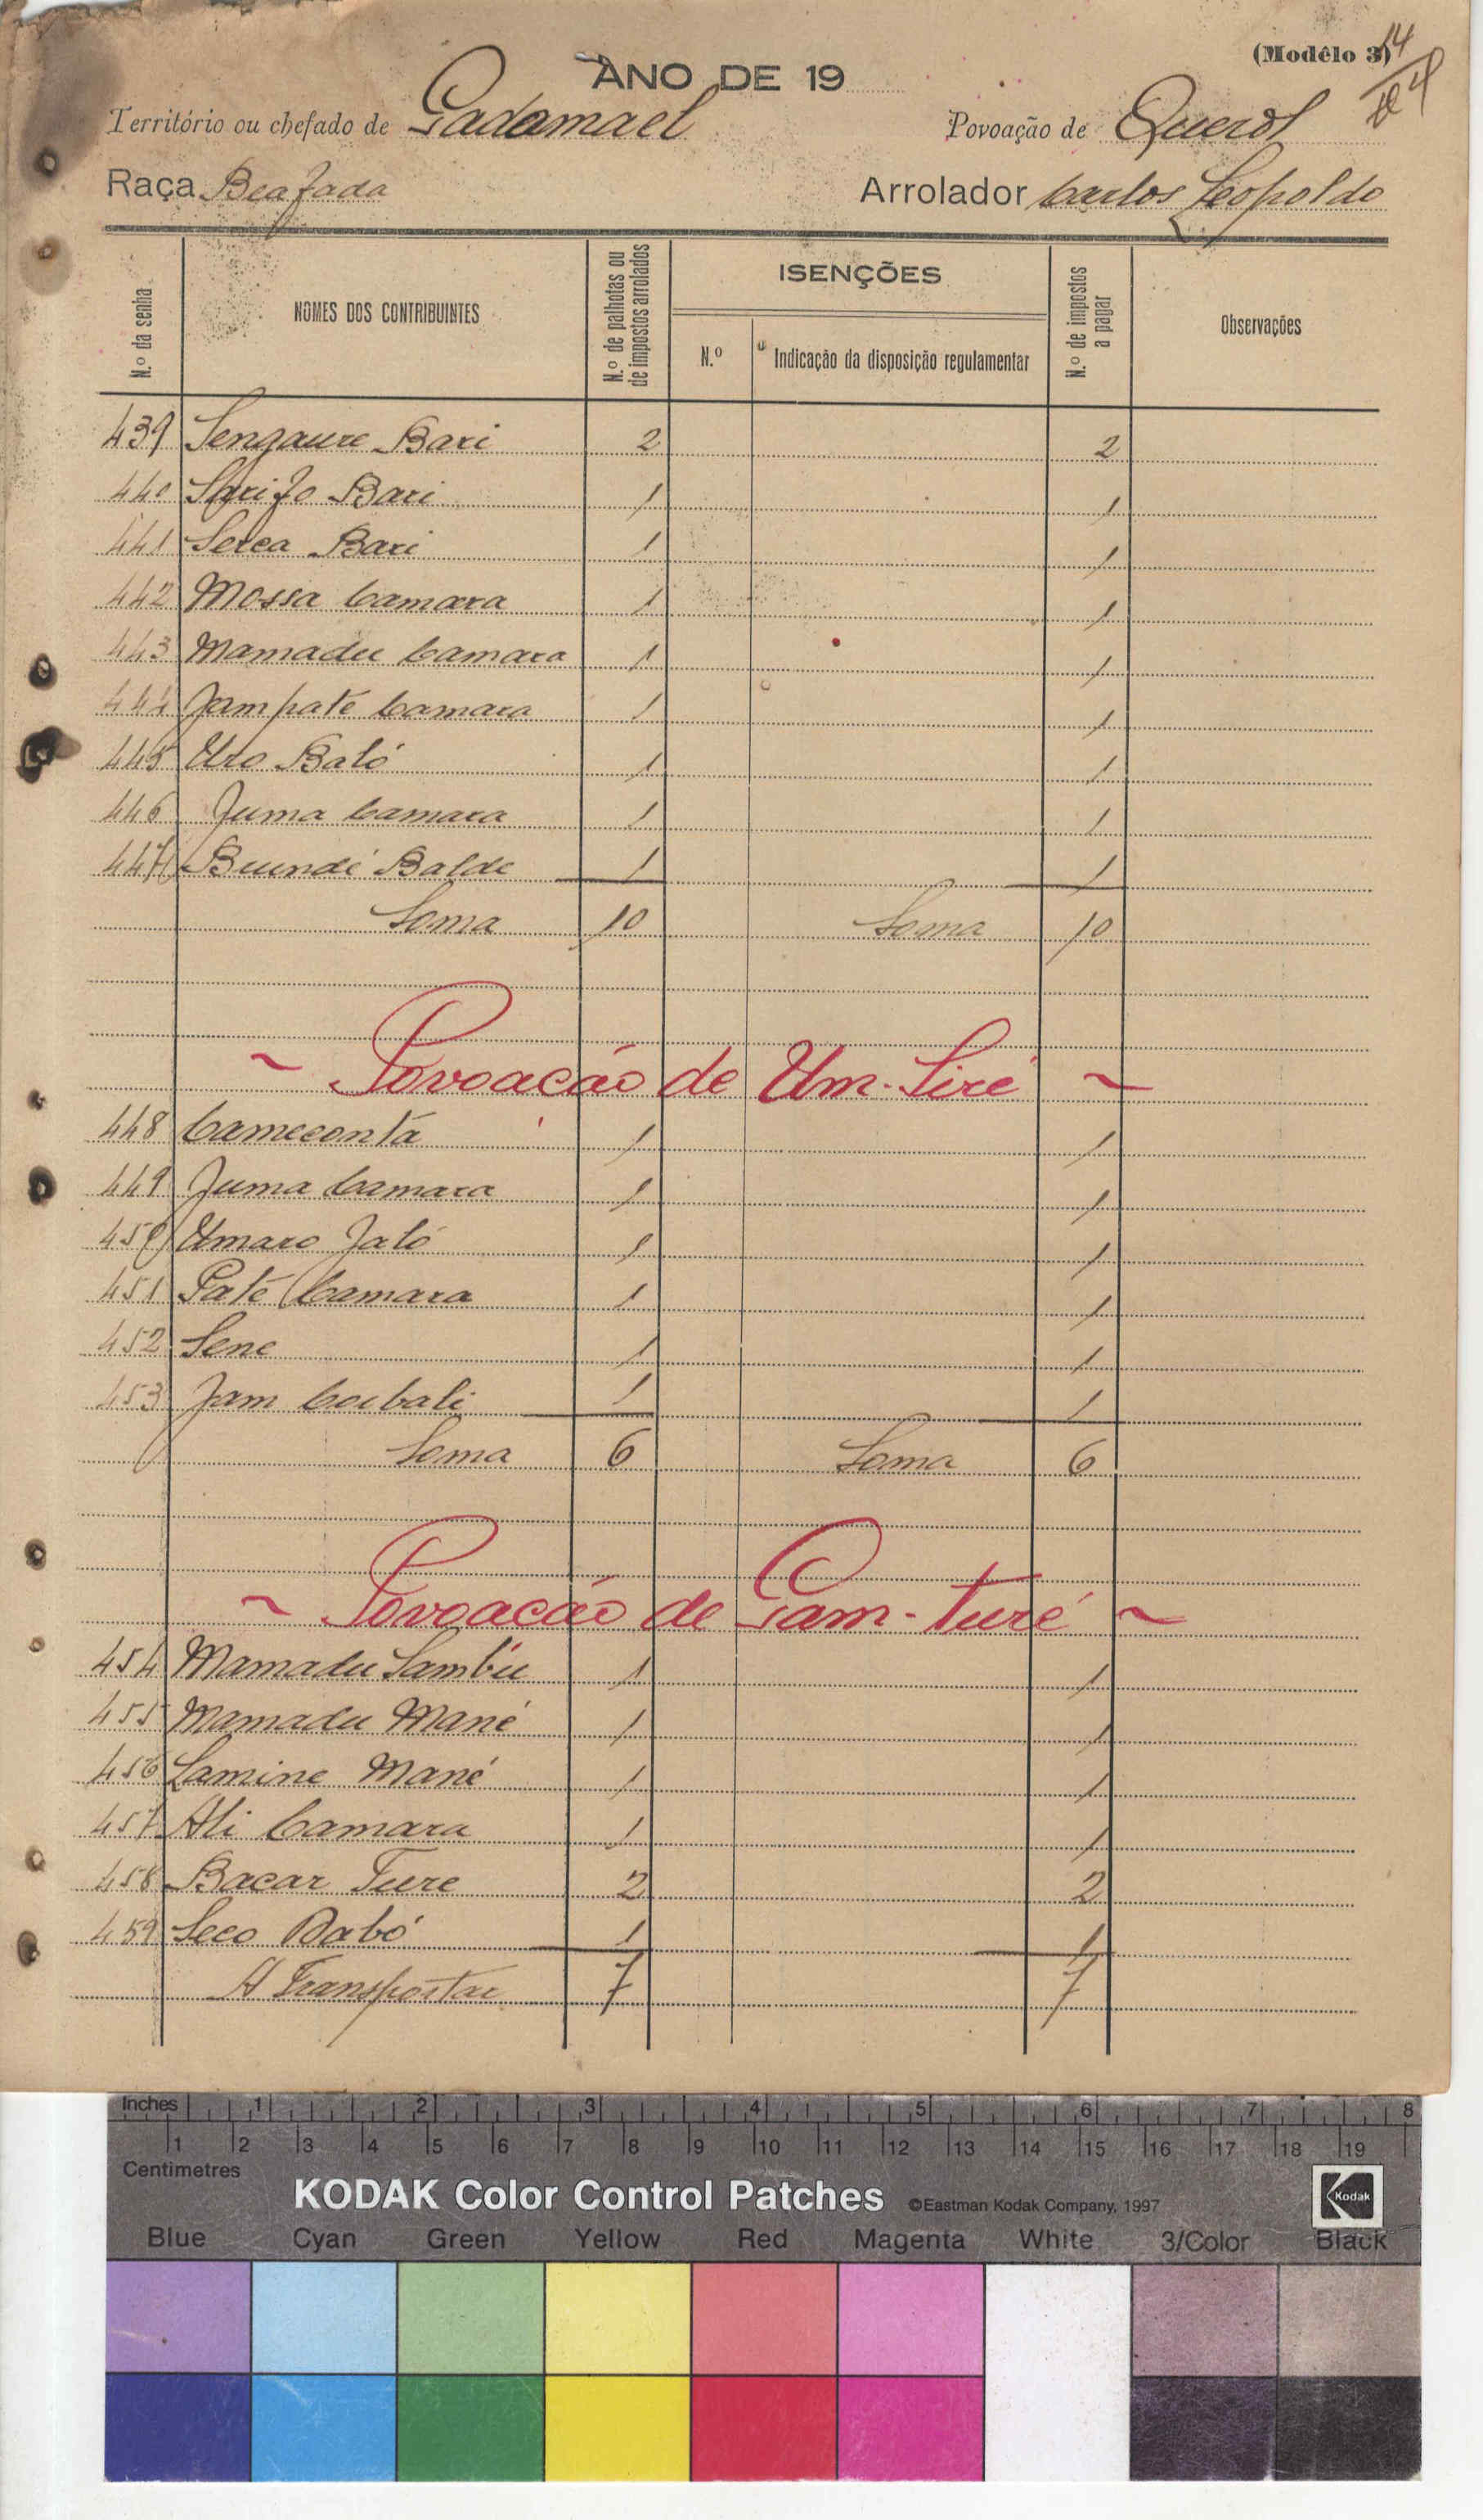 (Modêlo 3) 14
ANO DE 19
Território ou chefado de Gadamael Povoação de Querol
Raça Beafada Arrolador Carlos Leopoldo
N.º da senha NOMES DOS CONTRIBUINTES N.º de palhotas ou de impostos arrolados ISENÇÕES N.º de impostos a pagar Observações
N.º Indicação da disposição regulamentar
439 Sengaure Bari 2 2
440 Sarifo Bari 1 1
441 Serea Bari 1 1
442 Mossa Camara 1 1
443 Mamadu Camara 1 1
444 Jampaté Camara 1 1
445 Uro Baló 1 1
446 Juma Camara 1 1
447 Bundé Balde 1 1
Soma 10 Soma 10
~ Povoacáo de Um-Siré ~
448 Cameconta 1 1
449 Juma Camara 1 1
450 Umaro Jaló 1 1
451 Paté Camara 1 1
452 Sene 1 1
453 Jam Coibali 1 1
Soma 6 Soma 6
~ Povoacáo de Gam-turé ~
454 Mamadu Sambú 1 1
455 Mamadu Mané 1 1
456 Lamine Mané 1 1
457 Ali Camara 1 1
458 Bacar Ture 2 2
459 Seco Dabó 1 1
A Transportar 7 7
Inches 1 2 3 4 5 6 7 8
1 2 3 4 5 6 7 8 9 10 11 12 13 14 15 16 17 18 19
Centimetres
KODAK Color Control Patches ©Eastman Kodak Company, 1997 Kodak
Blue Cyan Green Yellow Red Magenta White 3/Color Black